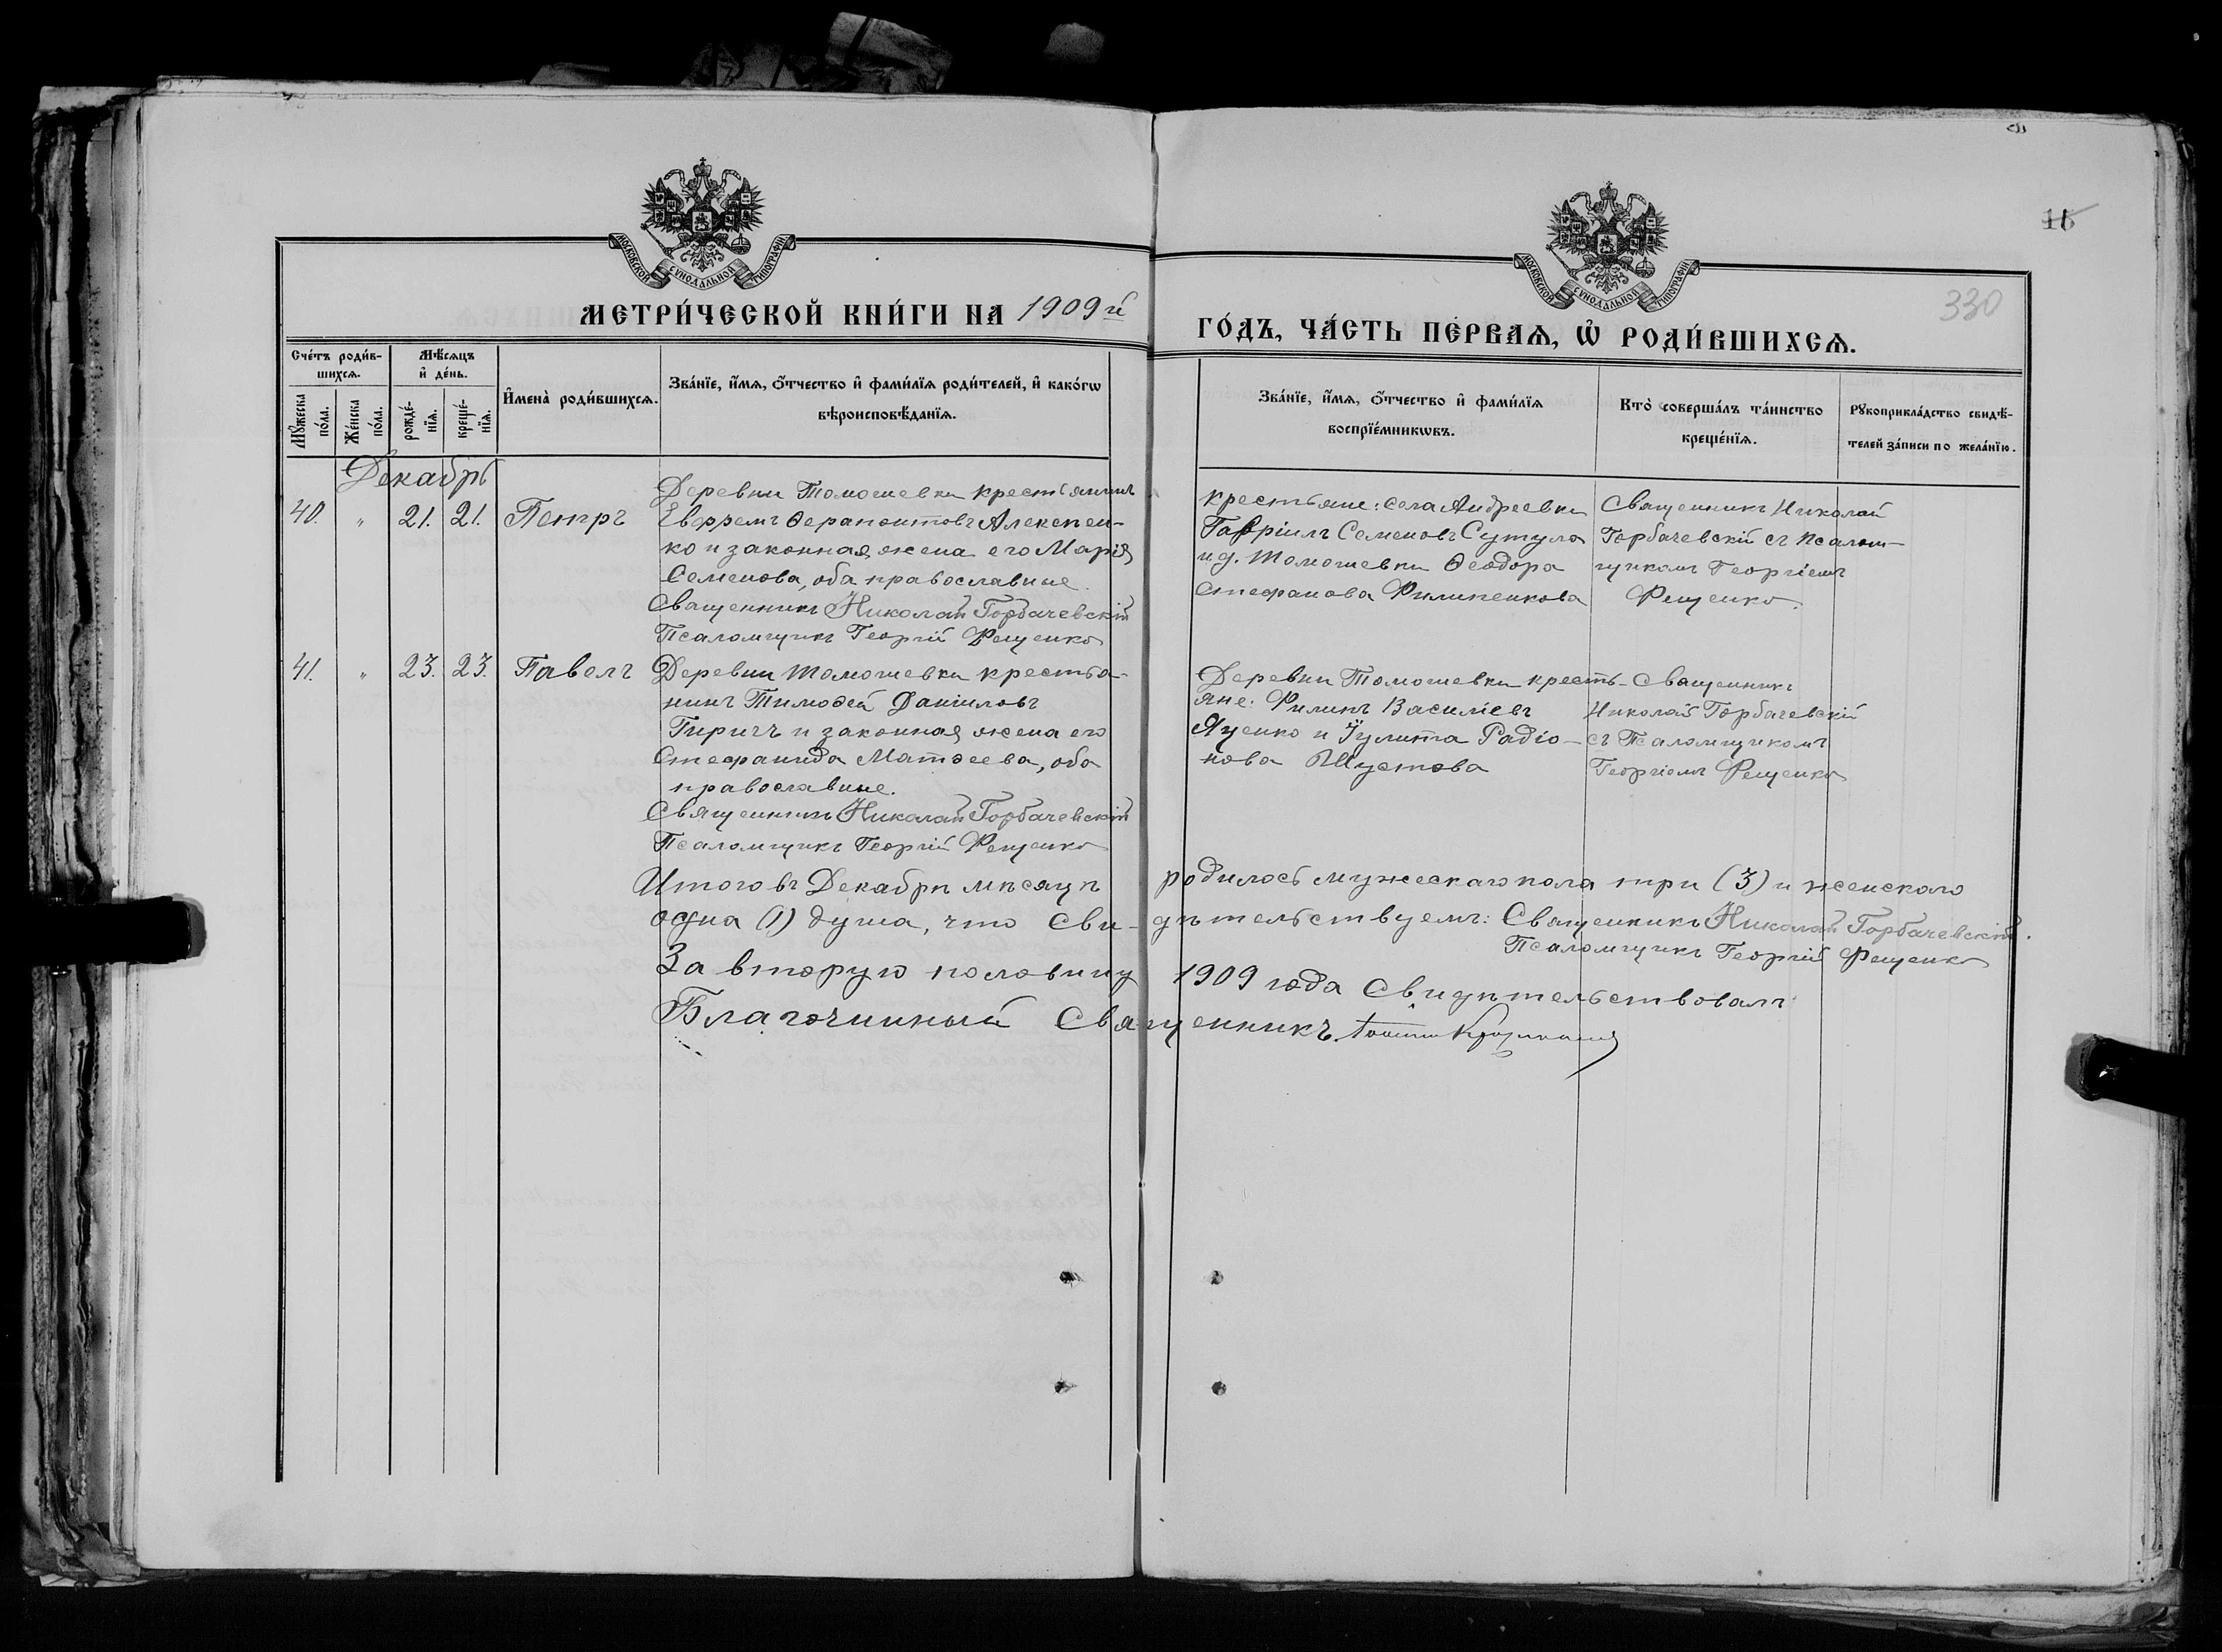 16
330
МОСКОВСКОЙ СѴНОДАЛЬНОЙ ТИПОГРАФІИ
МОСКОВСКОЙ СѴНОДАЛЬНОЙ ТИПОГРАФІИ
МЕТРИ́ЧЕСКОЙ КНИ́ГИ НА 1909 й
ГО́ДЪ, ЧА́СТЬ ПЕ́РВАѦ, Ѽ РОДИ́ВШИХСѦ.
Сче́тъ роди́в-
шихсѧ.
Мѣ́сѧцъ
и҆ де́нь.
Мꙋ́жеска
по́ла.
Же́нска
по́ла.
рожде́-
нїѧ.
креще́-
нїѧ.
И҆мена̀ роди́вшихсѧ.
Зва́нїе, и҆́мѧ, ѻ҆́тчество и҆ фами́лїѧ роди́телей, и҆ како́гѡ
вѣроисповѣ́данїѧ.
Зва́нїе, и҆́мѧ, ѻ҆́тчество и҆ фами́лїѧ
воспрїе́мникѡвъ.
Кто̀ соверша́лъ та́инство
креще́нїѧ.
Рꙋкоприкла́дство свидѣ́-
телей за́писи по жела́нїю.
Декабрь
40. " 21. 21. Петръ
Деревни Томошевки крестьянинъ
Евфремъ Ѳерапонтовъ Алексен-
ко и законная жена его Марія
Семенова, оба православные.
Священникъ Николай Горбачевскій
Псаломщикъ Георгій Фещенко
крестьяне: села Андреевки
Гавріилъ Семеновъ Сутула
и д. Томошевки Ѳеодора
Стефанова Филипенкова
Священникъ Николай
Горбачевскій съ Псалом-
щикомъ Георгіемъ
Фещенко.
41. " 23. 23. Павелъ
Деревни Томошевки крестья-
нинъ Тимоѳей Даніиловъ
Гиричъ и законная жена его
Стефанида Матѳеева, оба
православные.
Священникъ Николай Горбачевскій
Псаломщикъ Георгій Фещенко
Деревни Томошевки кресть-
яне: Филипъ Василіевъ
Яценко и Іулита Радіо-
нова Шустова
Священникъ
Николай Горбачевскій
съ Псаломщикомъ
Георгіемъ Фещенко
Итого въ Декабрѣ мѣсяцѣ родилось мужескаго пола три (3) и женскаго
одна (1) душа, что сви-дѣтельствуемъ: Священникъ Николай Горбачевскій.
Псаломщикъ Георгій Фещенко
За вторую половину 1909 года Свидѣтельствовалъ:
Благочинный Священникъ